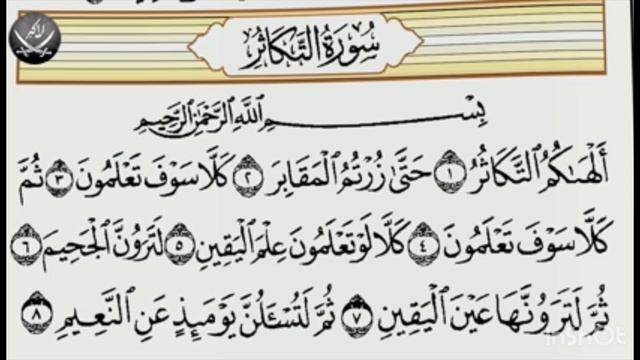 سُورَةُ التَّكَاثُرِ
بِسْمِ اللَّهِ الرَّحْمَٰنِ الرَّحِيمِ
أَلْهَىٰكُمُ التَّكَاثُرُ ١ حَتَّىٰ زُرْتُمُ الْمَقَابِرَ ٢ كَلَّا سَوْفَ تَعْلَمُونَ ٣ ثُمَّ
كَلَّا سَوْفَ تَعْلَمُونَ ٤ كَلَّا لَوْ تَعْلَمُونَ عِلْمَ الْيَقِينِ ٥ لَتَرَوُنَّ الْجَحِيمَ ٦
ثُمَّ لَتَرَوُنَّهَا عَيْنَ الْيَقِينِ ٧ ثُمَّ لَتُسْأَلُنَّ يَوْمَئِذٍ عَنِ النَّعِيمِ ٨
InShOt